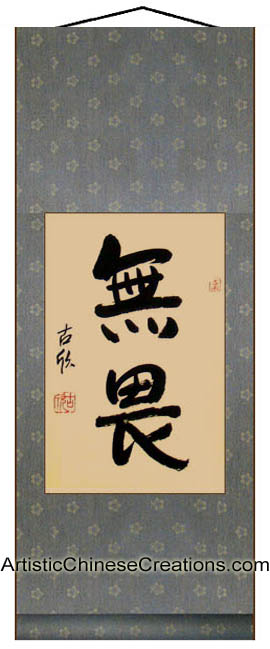 無畏
古欣
ArtisticChineseCreations.com